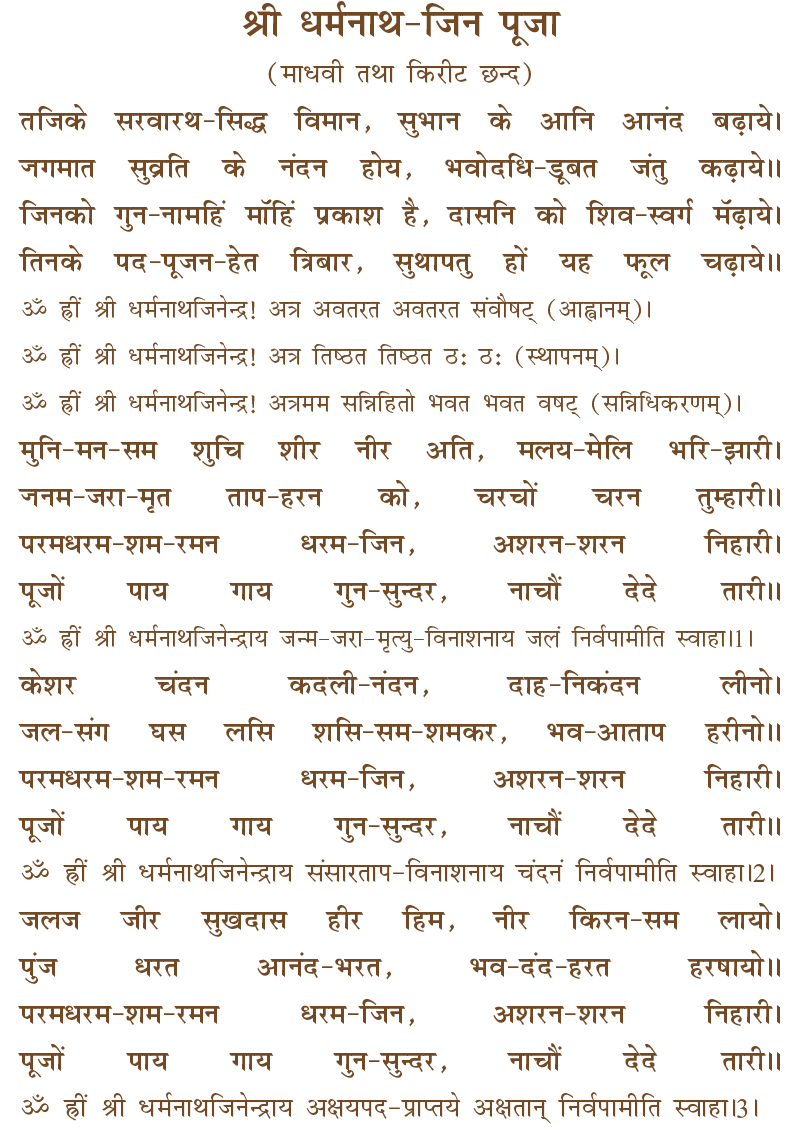 श्री धर्मनाथ-जिन पूजा
(माधवी तथा किरीट छन्द)
तजिके सरवारथ-सिद्ध विमान, सुभान के आनि आनंद बढ़ाये।
जगमात सुव्रति के नंदन होय, भवोदधि-डूबत जंतु कढ़ाये॥
जिनको गुन-नामहिं माँहिं प्रकाश है, दासनि को शिव-स्वर्ग मँढ़ाये।
तिनके पद-पूजन-हेत त्रिबार, सुथापतु हों यह फूल चढ़ाये॥
ॐ ह्रीं श्री धर्मनाथजिनेन्द्र! अत्र अवतरत अवतरत संवौषट् (आह्वानम्)।
ॐ ह्रीं श्री धर्मनाथजिनेन्द्र! अत्र तिष्ठत तिष्ठत ठ: ठ: (स्थापनम्)।
ॐ ह्रीं श्री धर्मनाथजिनेन्द्र! अत्रमम सन्निहितो भवत भवत वषट् (सन्निधिकरणम्)।
मुनि-मन-सम शुचि शीर नीर अति, मलय-मेलि भरि-झारी।
जनम-जरा-मृत ताप-हरन को, चरचों चरन तुम्हारी॥
परमधरम-शम-रमन धरम-जिन, अशरन-शरन निहारी।
पूजों पाय गाय गुन-सुन्दर, नाचौं देदे तारी॥
ॐ ह्रीं श्री धर्मनाथजिनेन्द्राय जन्म-जरा-मृत्यु-विनाशनाय जलं निर्वपामीति स्वाहा।1।
केशर चंदन कदली-नंदन, दाह-निकंदन लीनो।
जल-संग घस लसि शसि-सम-शमकर, भव-आताप हरीनो॥
परमधरम-शम-रमन धरम-जिन, अशरन-शरन निहारी।
पूजों पाय गाय गुन-सुन्दर, नाचौं देदे तारी॥
ॐ ह्रीं श्री धर्मनाथजिनेन्द्राय संसारताप-विनाशनाय चंदनं निर्वपामीति स्वाहा।2।
जलज जीर सुखदास हीर हिम, नीर किरन-सम लायो।
पुंज धरत आनंद-भरत, भव-दंद-हरत हरषायो॥
परमधरम-शम-रमन धरम-जिन, अशरन-शरन निहारी।
पूजों पाय गाय गुन-सुन्दर, नाचौं देदे तारी॥
ॐ ह्रीं श्री धर्मनाथजिनेन्द्राय अक्षयपद-प्राप्तये अक्षतान् निर्वपामीति स्वाहा।3।